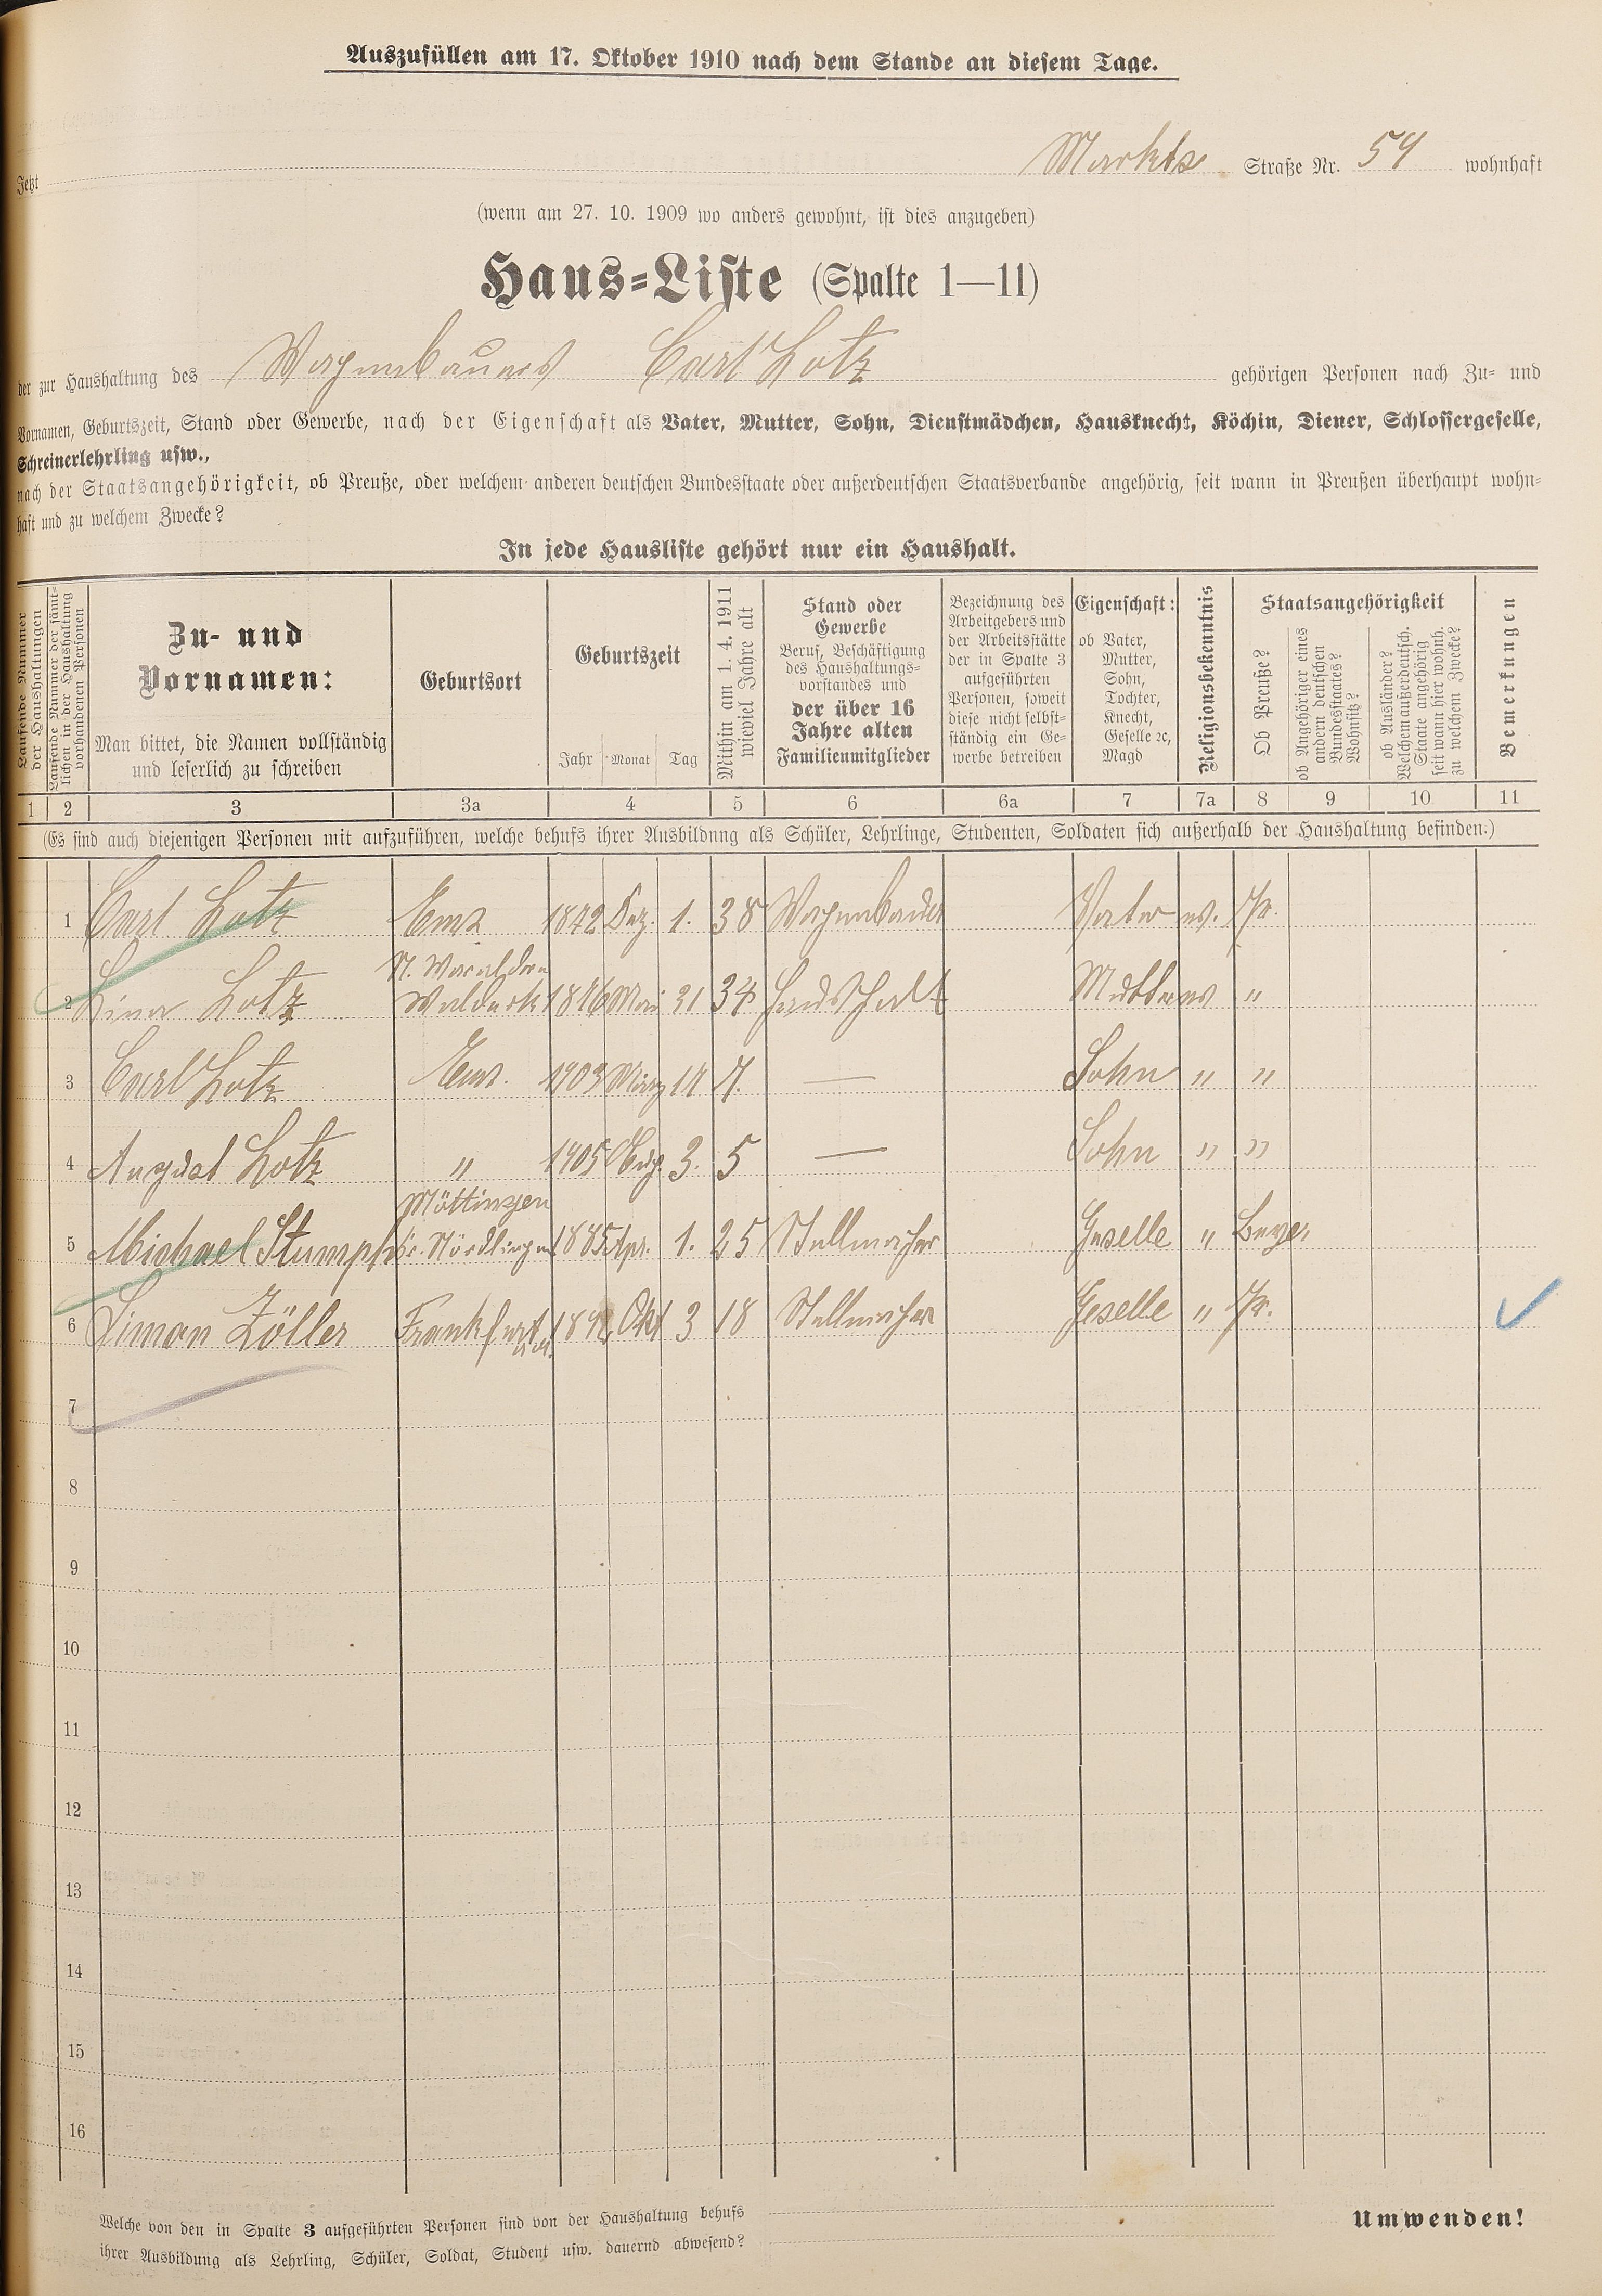 Auszufüllen am 17. Oktober 1910 nach dem Stande an diesem Tage.
Jetzt Markts Straße Nr. 54 wohnhaft
(wenn am 27. 10. 1909 wo anders gewohnt, ist dies anzugeben)
Haus-Liste (Spalte 1—11)
der zur Haushaltung des Wagenbauers Carl Lotz gehörigen Personen nach Zu- und
Vornamen, Geburtszeit, Stand oder Gewerbe, nach der Eigenschaft als Vater, Mutter, Sohn, Dienstmädchen, Hausknecht, Köchin, Diener, Schlossergeselle,
Schreinerlehrling usw.,
nach der Staatsangehörigkeit, ob Preuße, oder welchem anderen deutschen Bundesstaate oder außerdeutschen Staatsverbande angehörig, seit wann in Preußen überhaupt wohn-
haft und zu welchem Zwecke?
In jede Hausliste gehört nur ein Haushalt.
Laufende Nummer der Haushaltungen
Laufende Nummer der sämt-lichen in der Haushaltung vorhandenen Personen
Zu- und Vornamen:
Man bittet, die Namen vollständig und leserlich zu schreiben
Geburtsort
Geburtszeit
Jahr Monat Tag
Mithin am 1. 4. 1911 wieviel Jahre alt
Stand oder Gewerbe
Beruf, Beschäftigung des Haushaltungs-vorstandes und der über 16 Jahre alten Familienmitglieder
Bezeichnung des Arbeitgebers und der Arbeitsstätte der in Spalte 3 aufgeführten Personen, soweit diese nicht selbst-ständig ein Ge-werbe betreiben
Eigenschaft: ob Vater, Mutter, Sohn, Tochter, Knecht, Geselle ꝛc, Magd
Religionsbekenntnis
Staatsangehörigkeit
Ob Preuße?
ob Angehöriger eines andern deutschen Bundesstaates? Wohnsitz?
ob Ausländer? Welchem außerdeutsch. Staate angehörig seit wann hier wohnh. zu welchem Zwecke?
Bemerkungen
1 2 3 3a 4 5 6 6a 7 7a 8 9 10 11
(Es sind auch diejenigen Personen mit aufzuführen, welche behufs ihrer Ausbildung als Schüler, Lehrlinge, Studenten, Soldaten sich außerhalb der Haushaltung befinden.)
1 Carl Lotz Ems 1872 Dez. 1. 38 Wagenbauer Vater ev. Pr.
2 Lina Lotz Waldeck 1876 Mai 21 34 Haushalt Mutter ev "
3 Carl Lotz Ems. 1903 März 14 7. — Sohn " "
4 August Lotz " 1905 Aug. 3. 5 — Sohn " "
Möttingen
5 Michael Stumpf br. Nördlingen 1885 Apr. 1. 25 Stellmacher Geselle " Bayer
6 Simon Zöller Frankfurt a.M. 1892 Okt 3 18 Stellmacher Geselle " Pr.
7
8
9
10
11
12
13
14
15
16
Welche von den in Spalte 3 aufgeführten Personen sind von der Haushaltung behufs
ihrer Ausbildung als Lehrling, Schüler, Soldat, Student usw. dauernd abwesend?
Umwenden!